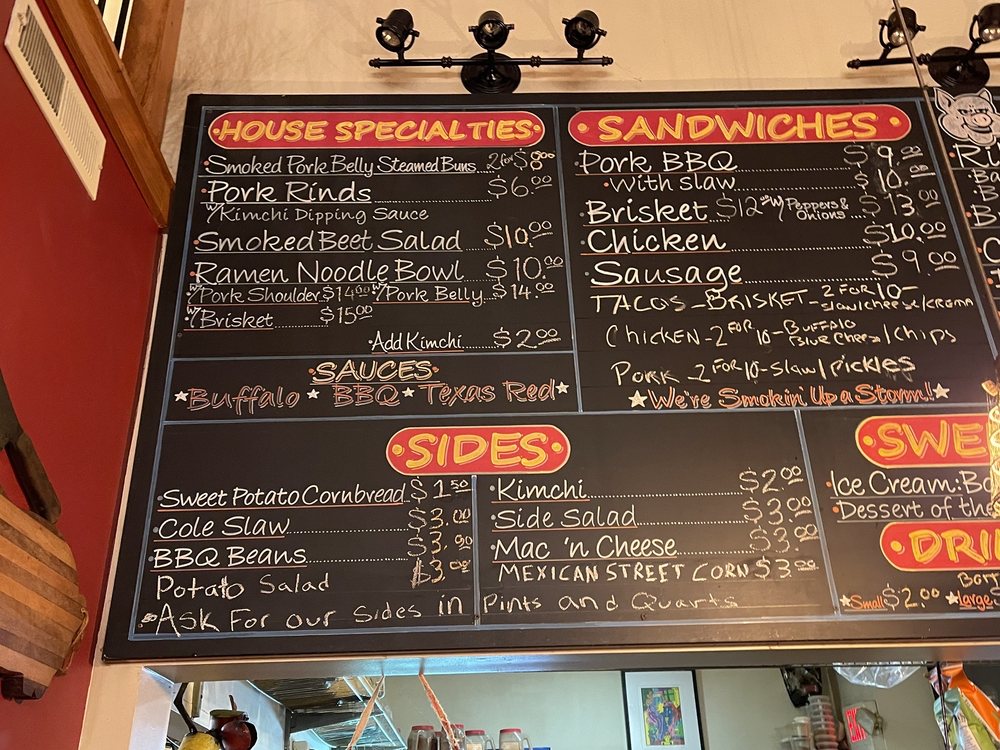 HOUSE SPECIALTIES
Smoked Pork Belly Steamed Buns 2 for $8.00
Pork Rinds $6.00
w/Kimchi Dipping Sauce
Smoked Beet Salad $10.00
Ramen Noodle Bowl $10.00
w/Pork Shoulder $14.00 w/Pork Belly $14.00
w/Brisket $15.00
Add Kimchi $2.00
SAUCES
Buffalo ★ BBQ ★ Texas Red
SANDWICHES
Pork BBQ $9.00
With Slaw $10.00
Brisket $12.00 w/ Peppers & Onions $13.00
Chicken $10.00
Sausage $9.00
TACOS - BRISKET - 2 FOR 10 - slaw/cheese/crema
CHICKEN - 2 FOR 10 - BUFFALO BLUE CHEESE/CHIPS
PORK - 2 FOR 10 - Slaw/Pickles
★ We're Smokin' Up a Storm!! ★
SIDES
Sweet Potato Cornbread $1.50
Cole Slaw $3.00
BBQ Beans $3.00
Potato Salad $3.00
Kimchi $2.00
Side Salad $3.00
Mac 'n Cheese $3.00
MEXICAN STREET CORN $3.00
Ask For our Sides in Pints and Quarts
SWE
Ice Cream: Ba
Dessert of the
DRI
Small $2.00 ★ large